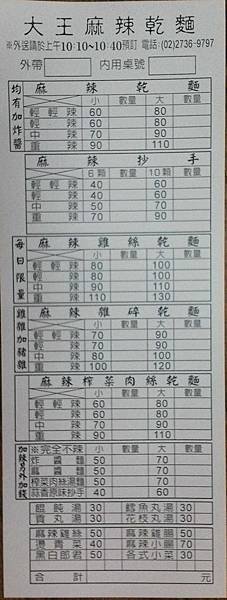 大王麻辣乾麵
※外送請於上午10:10~10:40預訂 電話:(02)2736-9797
外帶 內用桌號
均有加炸醬
麻辣乾麵
小 數量 大 數量
輕輕辣 60 80
輕辣 60 80
中辣 70 90
重辣 90 110
麻辣抄手
6顆 數量 10顆 數量
輕輕辣 40 60
輕辣 40 60
中辣 50 70
重辣 70 90
每日限量
麻辣雞絲乾麵
小 數量 大 數量
輕輕辣 80 100
輕辣 80 100
中辣 90 110
重辣 110 130
麻辣雜碎乾麵
小 數量 大 數量
輕輕辣 70 90
輕辣 70 90
中辣 80 100
重辣 100 120
麻辣榨菜肉絲乾麵
小 數量 大 數量
輕輕辣 60 80
輕辣 60 80
中辣 70 90
重辣 90 110
加辣另外加錢
※完全不辣 小 數量 大 數量
炸醬麵 50 70
麻醬麵 50 70
榨菜肉絲湯麵 50 70
蒜香原味抄手 40 60
餛飩湯 30 鱈魚丸湯 30
貢丸湯 30 花枝丸湯 30
麻辣雞絲 50 麻辣雞腸 50
燙青菜 40 麻辣小腸 70
黑白郎君 50 各式小菜 30
合計 元